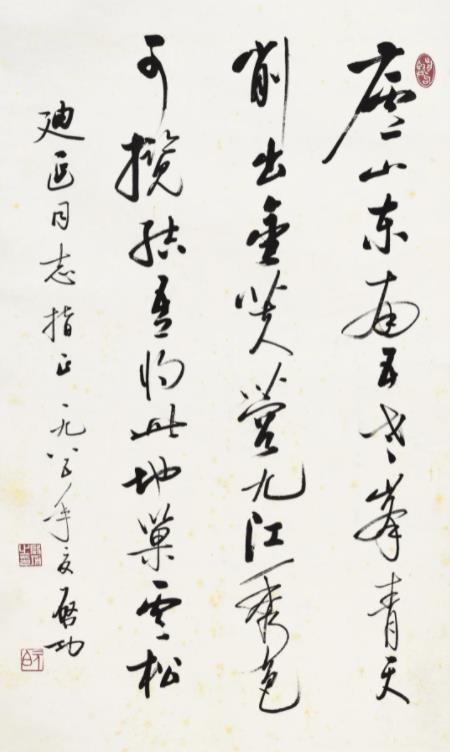 廬山东南五老峯青天
削出金芙蓉九江秀色
可揽结吾将此地巢雲松
迪同志指正一九八年夏启功